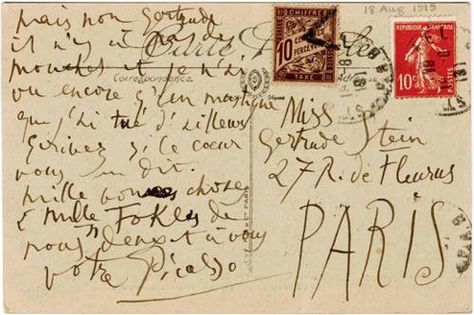 18 Aug 1919
Carte Postale
Correspondance
mais non Gertrude
il n'y a pas de
mouches et je n'ai
vu encore q'un mustique
que j'ai tué d'ailleurs
Ecrivez si le coeur
vous en dit.
mille bonnes choses
& mille
de
nous deux à vous
votre Picasso
CHIFFRE
10 CENTIMES
A PERCEVOIR
TAXE
10c
POSTES
Miss
Gertrude Stein
27 R. de Fleurus
PARIS